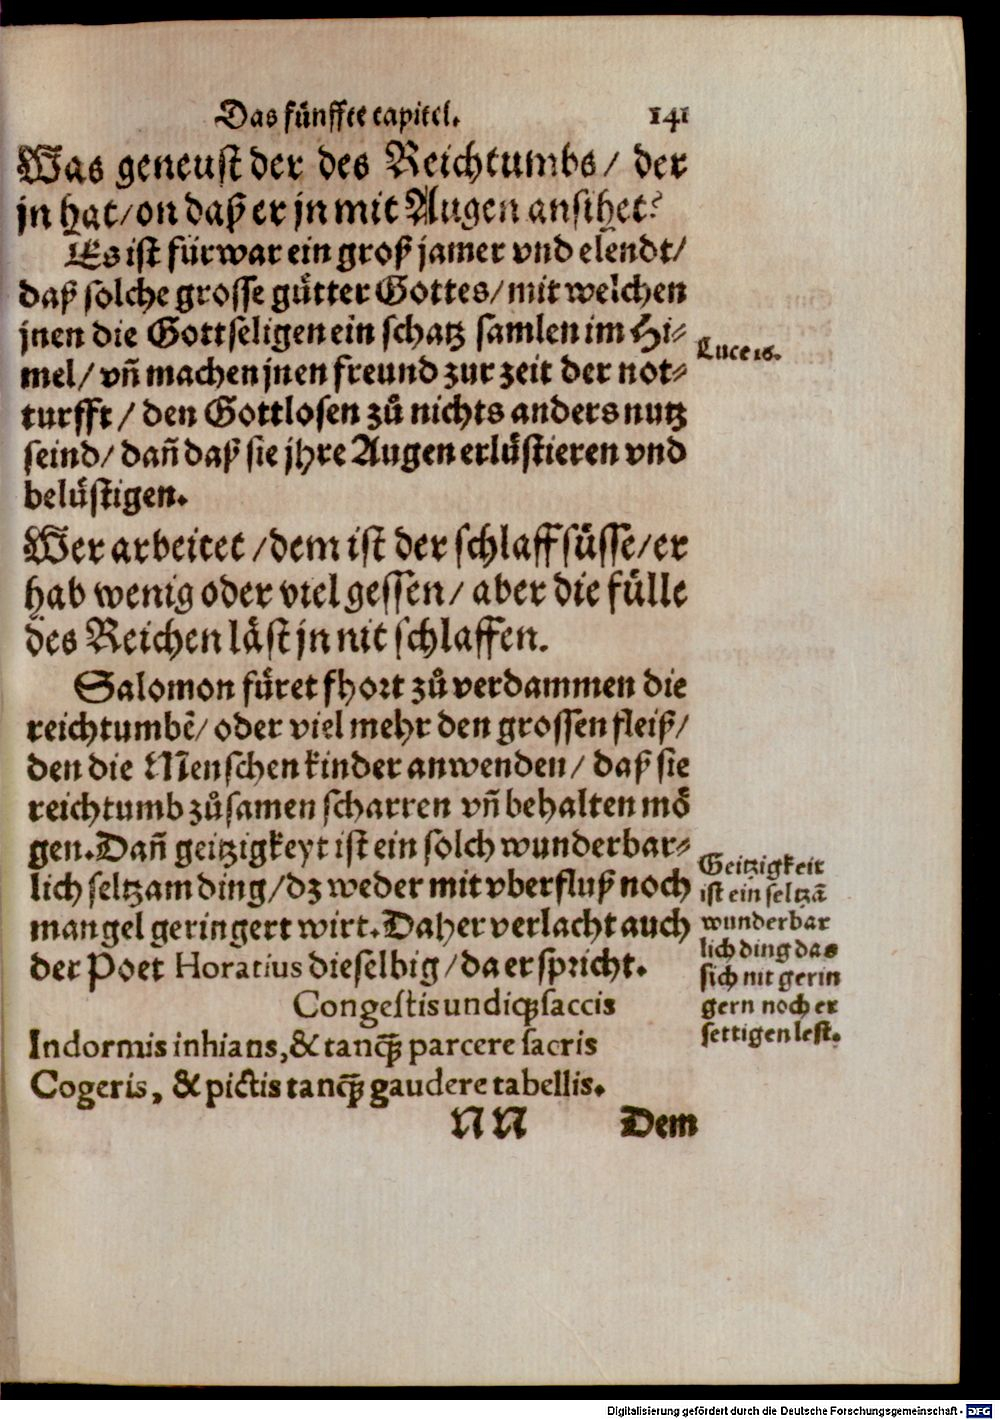 Das fünffte capitel. 141
Was geneust der des Reichtumbs/ der
jn hat/on daß er jn mit Augen ansihet?
Es ist fürwar ein groß jamer vnd elendt/
daß solche grosse gütter Gottes/mit welchen
jnen die Gottseligen ein schatz samlen im Hi⸗
mel/ vñ machen jnen freund zur zeit der not⸗
turfft/ den Gottlosen zů nichts anders nutz
seind/ dañ daß sie jhre Augen erlüstieren vnd
belüstigen.
Luce 16.
Wer arbeitet/dem ist der schlaff süsse/er
hab wenig oder viel gessen/ aber die fülle
des Reichen läst jn nit schlaffen.
Salomon füret fhort zů verdammen die
reichtumbẽ/ oder viel mehr den grossen fleiß/
den die Menschen kinder anwenden/ daß sie
reichtumb zůsamen scharren vñ behalten mö
gen. Dañ geitzigkeyt ist ein solch wunderbar⸗
lich seltzam ding/dz weder mit vberfluß noch
mangel geringert wirt. Daher verlacht auch
der Poet Horatius dieselbig/da er spricht.
Geitzigkeit
ist ein seltzã
wunderbar
lich ding das
sich nit gerin
gern noch er
settigen lest.
Congestis undiqꝫ saccis
Indormis inhians, & tancꝗ̃ parcere sacris
Cogeris, & pictis tancꝗ̃ gaudere tabellis.
NN Dem
Digitalisierung gefördert durch die Deutsche Forschungsgemeinschaft - DFG